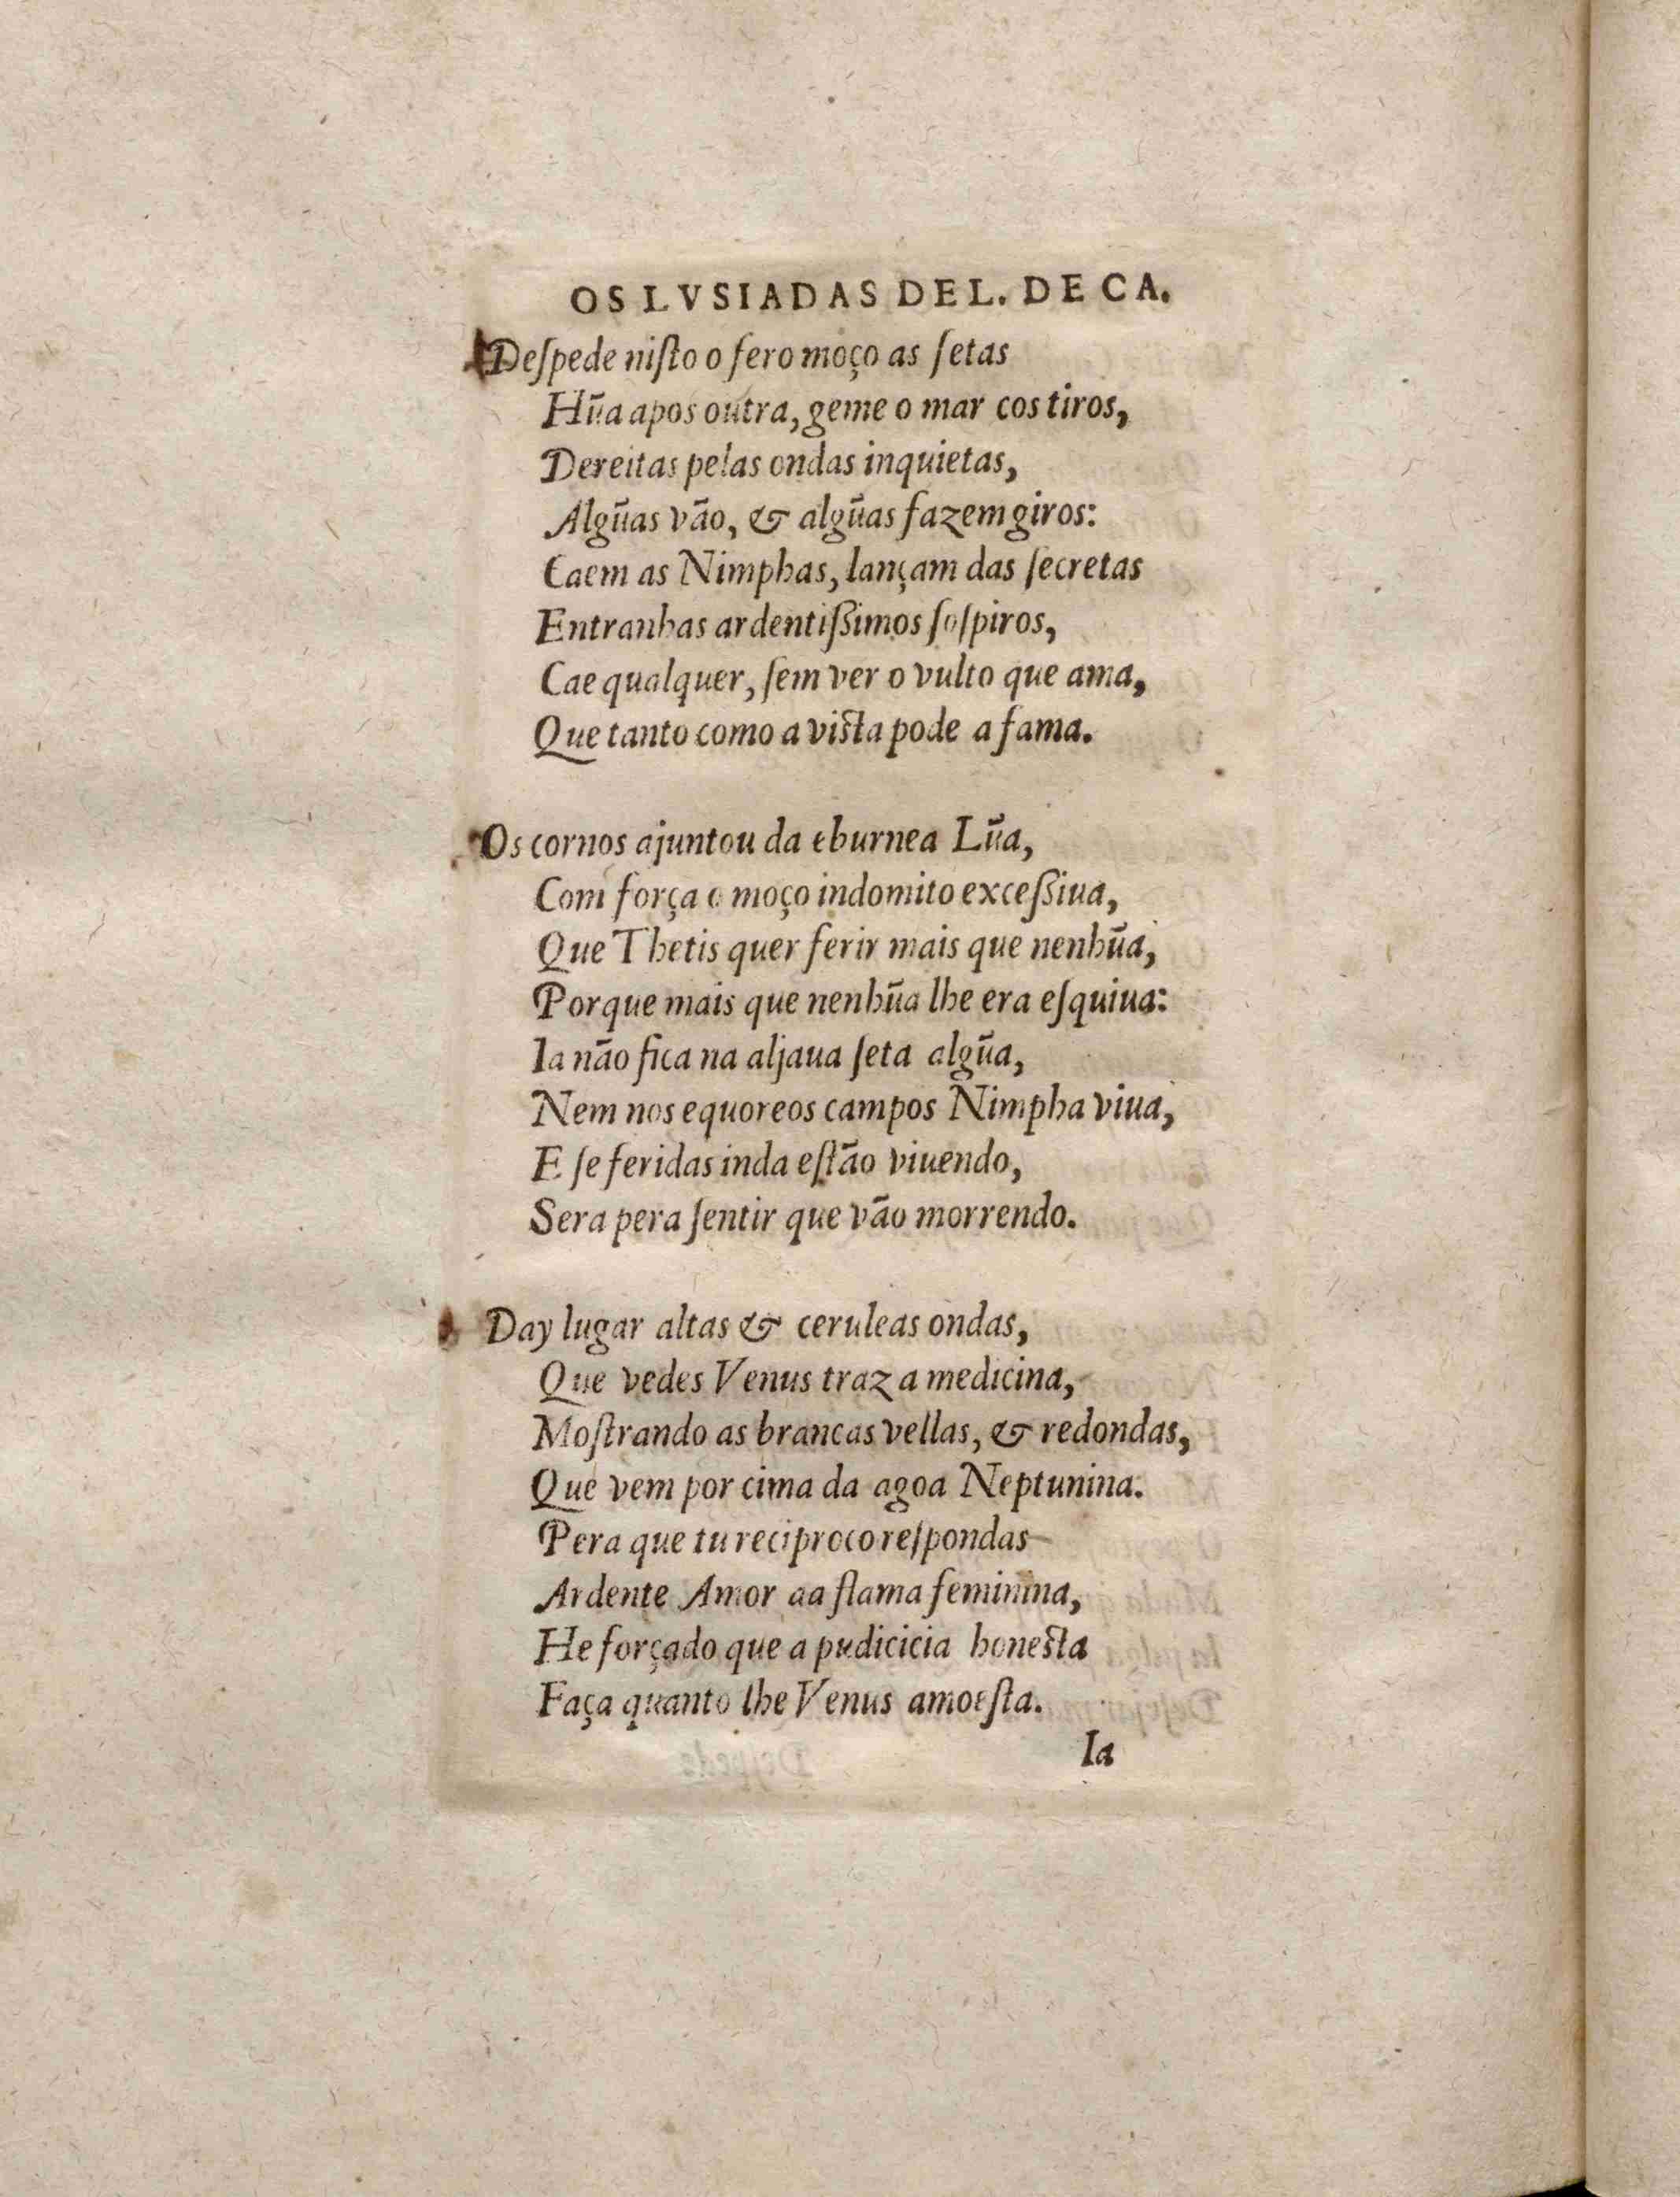 OS LVSIADAS DE L. DE CA.
Deſpede niſto o fero moço as ſetas
Hũa apos outra, geme o mar cos tiros,
Dereitas pelas ondas inquietas,
Algũas vão, & algũas fazem giros:
Caem as Nimphas, lançam das ſecretas
Entranhas ardentiſsimos ſoſpiros,
Cae qualquer, ſem ver o vulto que ama,
Que tanto como a viſta pode a fama.
Os cornos ajuntou da eburnea Lũa,
Com força o moço indomito exceſsiua,
Que Thetis quer ferir mais que nenhũa,
Porque mais que nenhũa lhe era eſquiua:
Ia não fica na aljaua ſeta algũa,
Nem nos equoreos campos Nimpha viua,
E ſe feridas inda eſtão viuendo,
Sera pera ſentir que vão morrendo.
Day lugar altas & ceruleas ondas,
Que vedes Venus traz a medicina,
Moſtrando as brancas vellas, & redondas,
Que vem por cima da agoa Neptunina.
Pera que tu reciproco reſpondas
Ardente Amor aa flama feminina,
He forçado que a pudicicia honeſta
Faça quanto lhe Venus amoeſta.
Ia